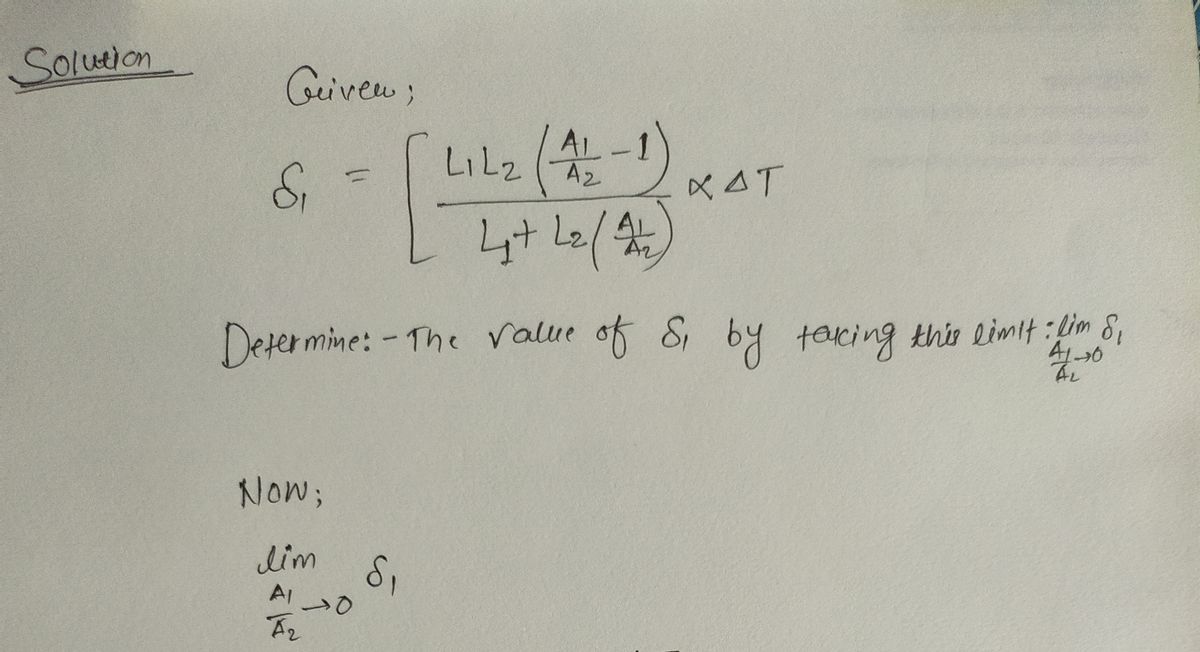 Solution
Given;
δ₁ = [ L1L2 (A1/A2 - 1) / L1 + L2 (A1/A2) ∝ ΔT
Determine: - The value of δ₁ by taking this limit : lim δ₁
A1/A2 → 0
Now;
lim δ₁
A1/A2 → 0